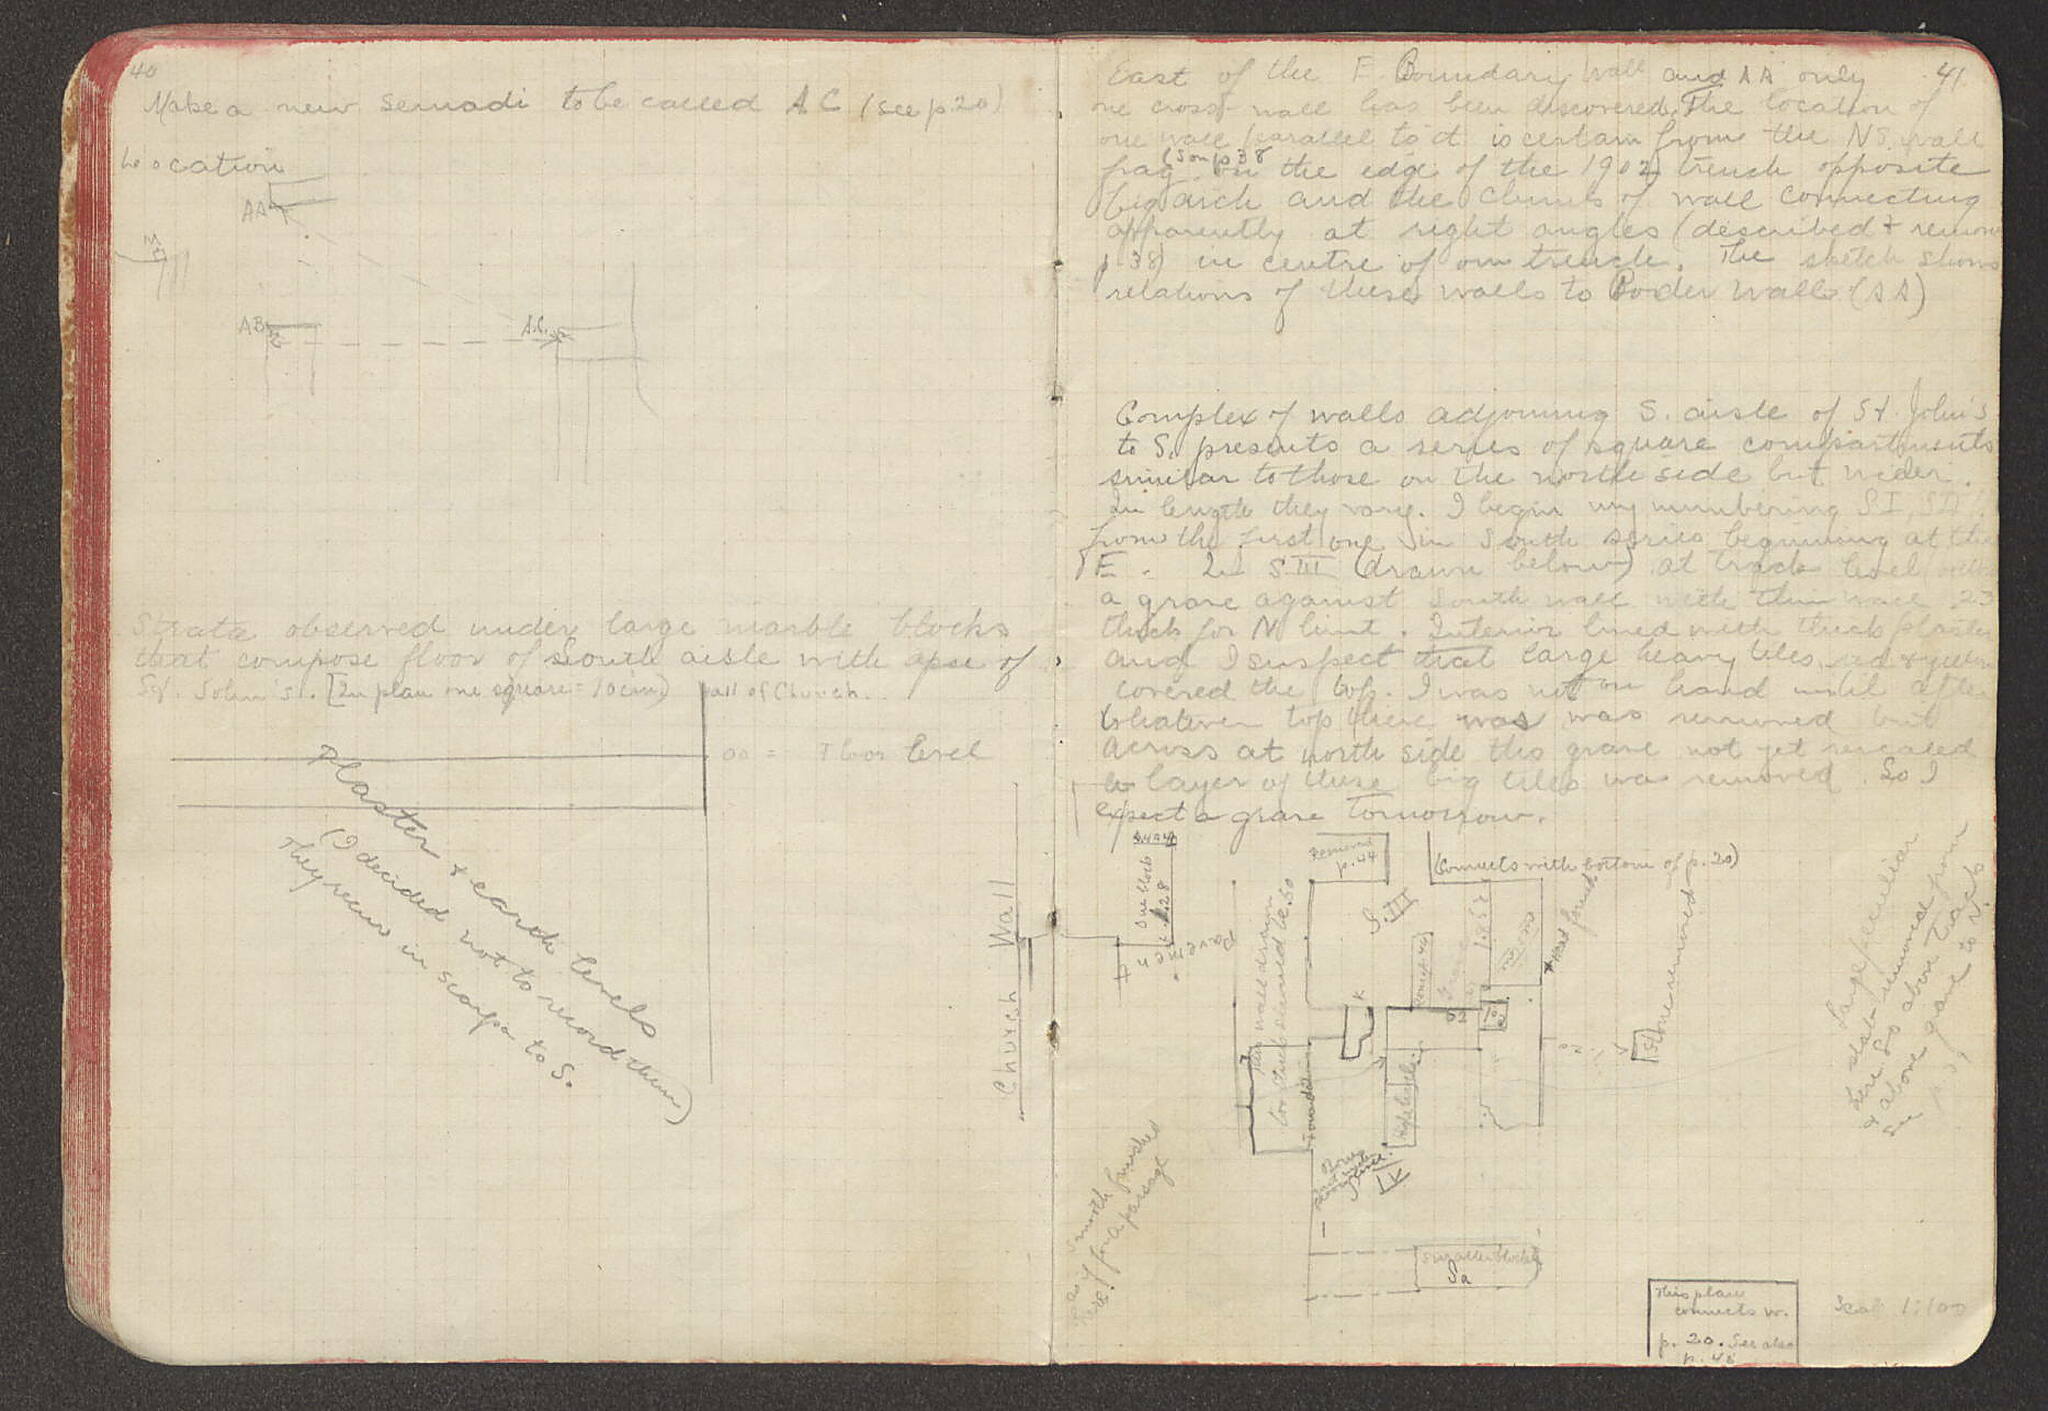 40
Make a new semadi to be called AC (see p 20)
Location
AA
AB
A.C.
Strata observed under large marble blocks
that compose floor of South aisle with apse of
St. John's. [In plan one square = 10 cm) wall of Church.
00 = Floor level
Plaster & earth levels
(I decided not to record them)
They view in scarp to S.
41.
East of the E. Boundary wall and AA only
one cross wall has been discovered. The location of
one wall parallel to it is certain from the NS wall
frag. (S on p 38 on the edge of the 1902 trench opposite
big arch and the chunks of wall connecting
apparently at right angles (described &
p 38) in centre of our trench. The sketch shows
relations of these walls to Border Wall (AA)
Complex of walls adjoining S. aisle of St John's
to S. presents a series of square compartments
similar to those on the north side but wider.
In length they vary. I begin my numbering SI, SII
from the first one in South series beginning at the
E. In SIII (drawn below) at track level
a grave against South wall with thin wall .23
thick for N limit. Interior lined with thick plaster
and I suspect that large heavy tiles, red & yellow
covered the top. I was not on hand until after
whatever top there was was removed but
across at north side this grave not yet revealed
a layer of these big tiles was removed. So I
expect a grave tomorrow.
Church Wall
One block
1.28
Removed
p. 44
(Connects with bottom of p. 20)
S. III
This wall drawn
too thick should be .60
Grave
Head found
Stone removed
K
Large peculiar
slab removed from
here. Lo above track
& above grave to N.
See p
as if smooth finished
here for a passage
IV
Smaller blocks
Sa
This plan
connects w.
p. 20. See also
p. 48
Scale 1:100